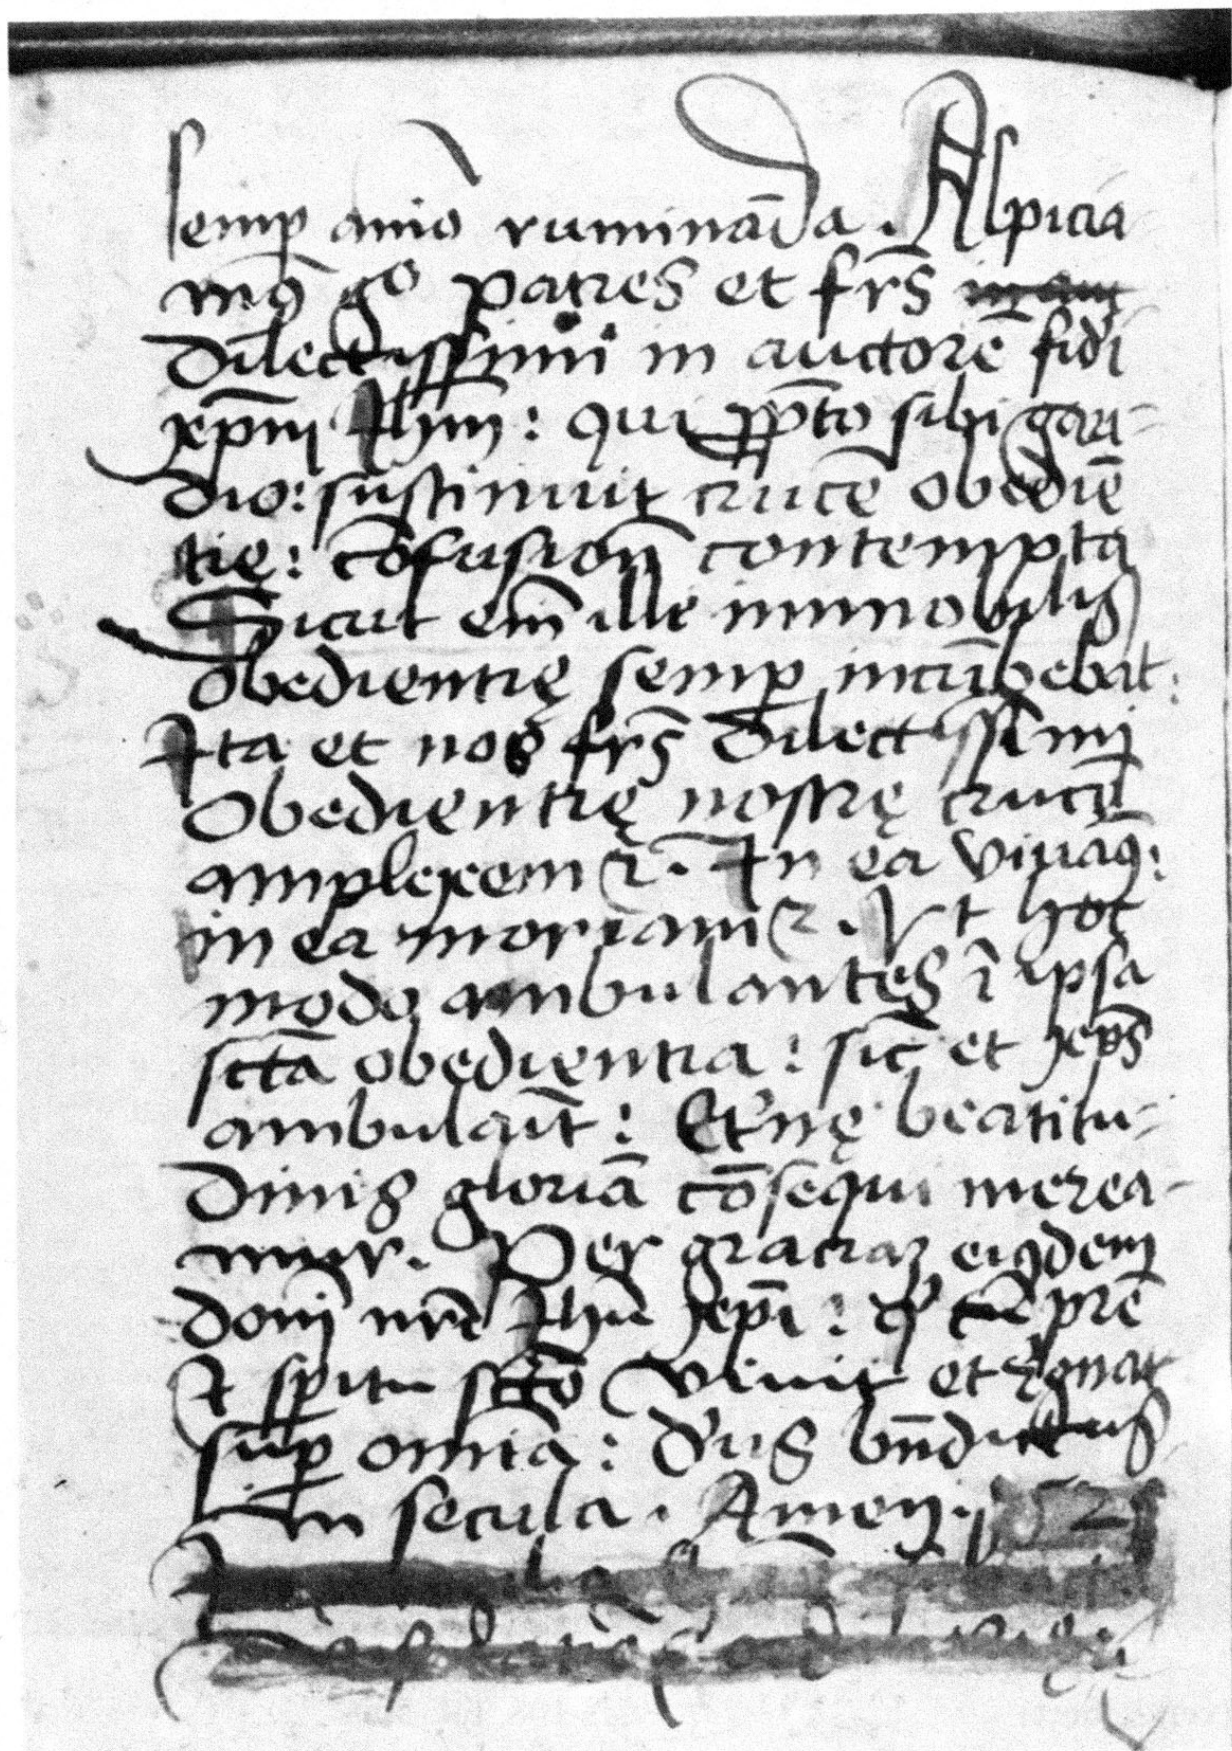 semp aīo rumināda. Aspicia
mꝰ gͦ patres et frēs
dilectissimi in auctorē fidi
xpm̄ Ihm̄: qui ꝓpōito sibi gau-
dio: sustinuit crucē obediē
tię: cōfusiōn contempta
Sicut em̄ ille immobilis
obedientię semp incūbebat:
Ita et nos frēs dilectissimi
obedientię nostrę crucē
amplexemꝛ. In ea viuāꝰ:
in ea moriamꝛ. Vt hoc
modo ambulantes ī ipsa
sctā obedientia: sic̄ et xp̄s
ambulauīt: Etn̄ę beatitu-
dinis gloriā cōsequi merea-
mur. Per graciaꝫ eiꝰdem
domī nrī Ihū xp̄i: qͥ cū prē
& spitu sctō viuit et regnat
sup omīa: dēus bn̄dictus
In secula. Amen. 152